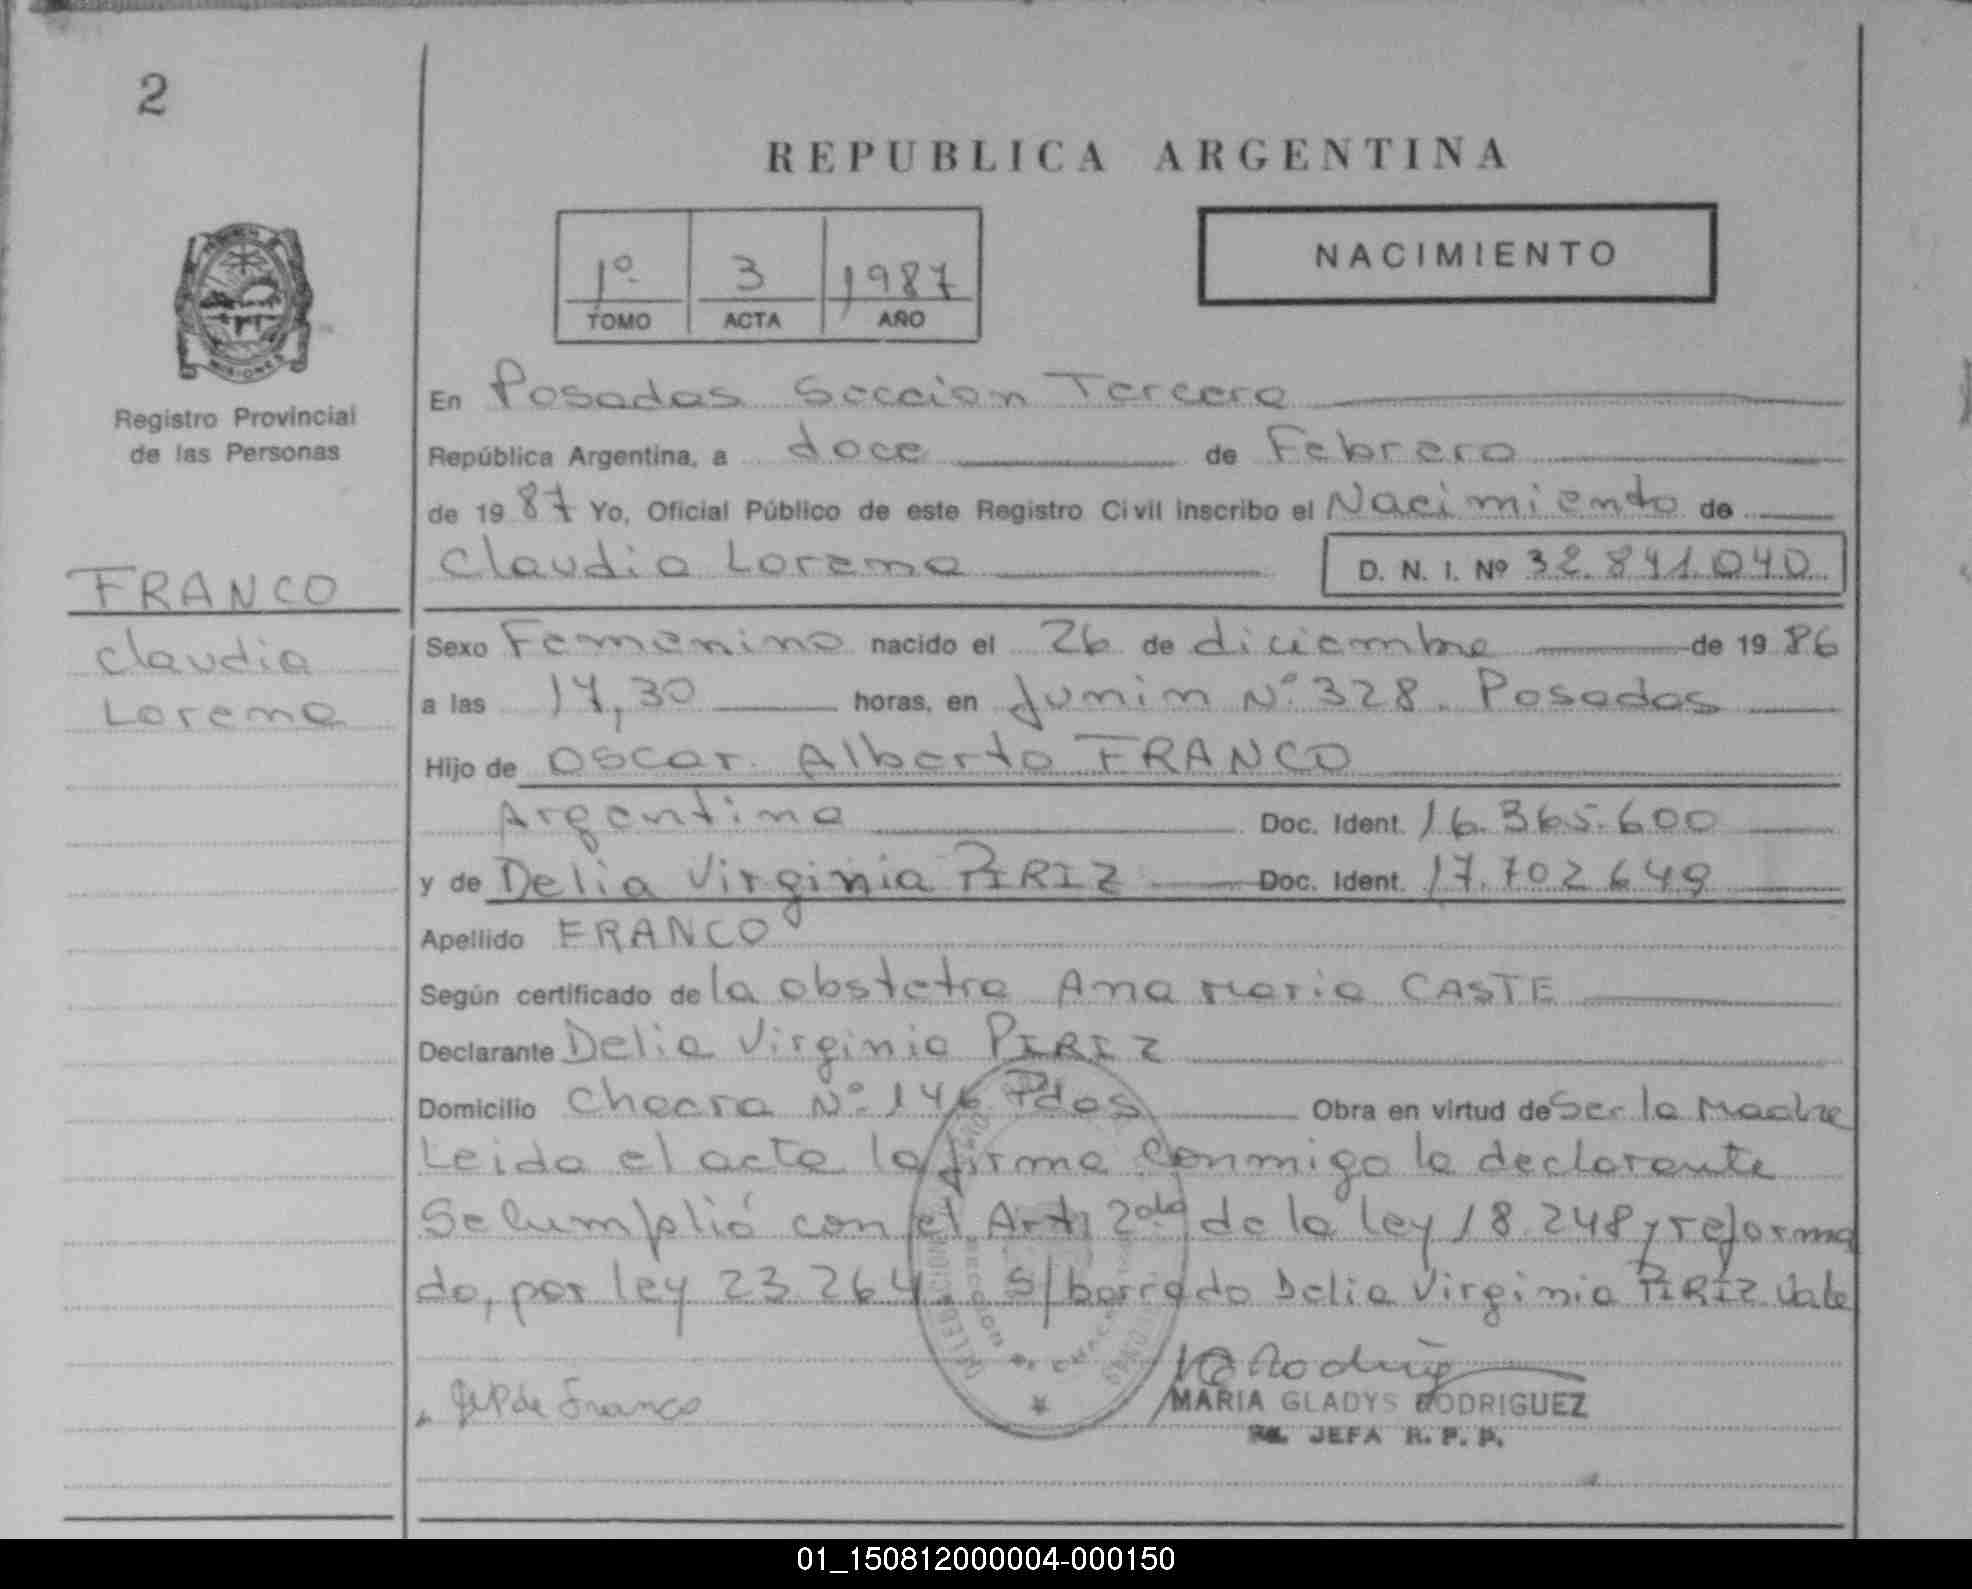 2
REPUBLICA ARGENTINA
NACIMIENTO
1º 3 1987
TOMO ACTA AÑO
MISIONES
Registro Provincial
de las Personas
En Posadas Seccion Tercera
República Argentina, a doce de Febrero
de 19 87 Yo, Oficial Público de este Registro Civil inscribo el Nacimiento de
Claudia Lorena D. N. I. Nº 32.841.040
FRANCO
Claudia
Lorena
Sexo Femenino nacido el 26 de diciembre de 19 86
a las 17,30 horas, en Junin Nº 328. Posadas
Hijo de Oscar Alberto FRANCO
Argentina Doc. Ident. 16.365.600
y de Delia Virginia PIRIZ Doc. Ident. 17.702.649
Apellido FRANCO
Según certificado de la obstetra Ana Maria CASTE
Declarante Delia Virginia PIRIZ
Domicilio Chacra Nº 146 Pdas Obra en virtud de Ser la Madre
Leida el acta la firma Conmigo la declarante
Se Cumplió con el Art. 2do de la ley 18.248 y reforma
do, por ley 23.264. S/borrado Delia Virginia PIRIZ Vale
de Franco
MARIA GLADYS RODRIGUEZ
JEFA R. P. P.
01_150812000004-000150